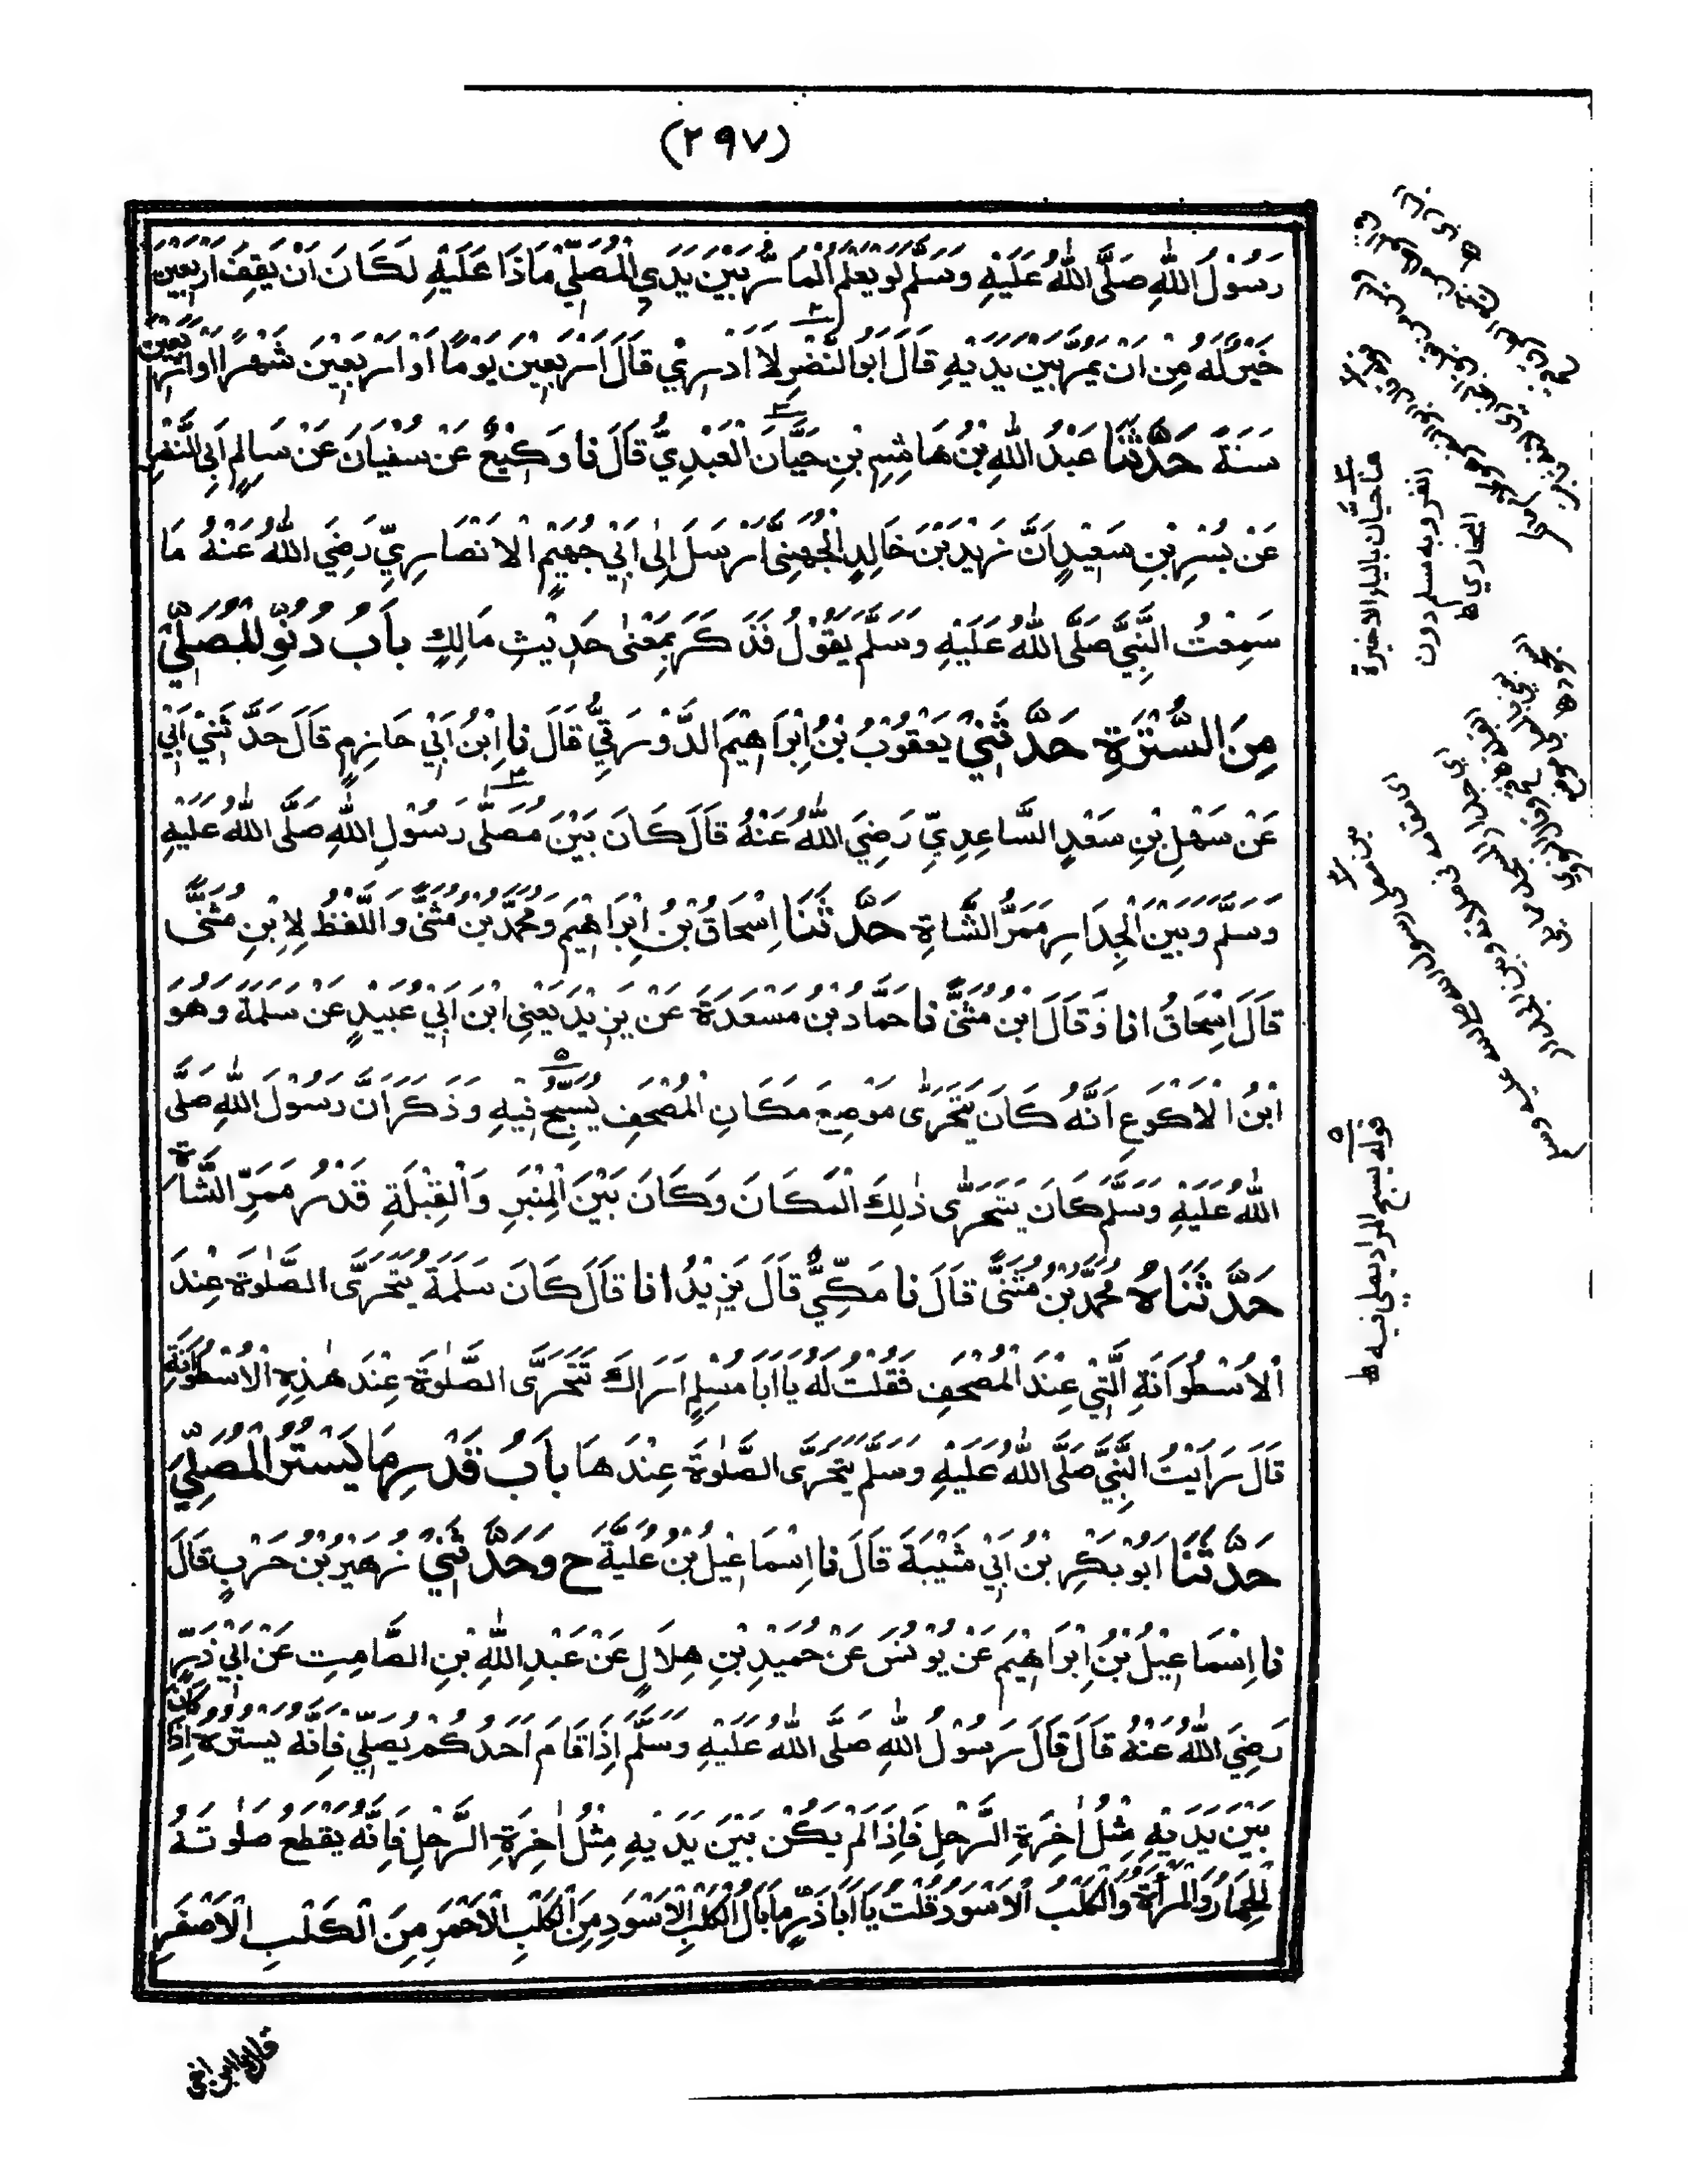 (٢٩٧)
رَسُوْلُ اللّٰهِ صَلَّى اللّٰهُ عَلَيْهِ وَسَلَّمَ لَوْ يَعْلَمُ الْمَارُّ بَيْنَ يَدَيِ الْمُصَلِّيْ مَاذَا عَلَيْهِ لَكَانَ اَنْ يَقِفَ اَرْبَعِيْنَ
خَيْرٌ لَهُ مِنْ اَنْ يَمُرَّ بَيْنَ يَدَيْهِ قَالَ اَبُو النَّضْرِ لَا اَدْرِيْ قَالَ اَرْبَعِيْنَ يَوْمًا اَوْ اَرْبَعِيْنَ شَهْرًا اَوْ اَرْبَعِيْنَ
سَنَةً حَدَّثَنَا عَبْدُ اللّٰهِ بْنُ هَاشِمِ بْنِ حَيَّانَ الْعَبْدِيُّ قَالَ نا وَكِيْعٌ عَنْ سُفْيَانَ عَنْ سَالِمٍ اَبِي النَّضْرِ
عَنْ بُسْرِ بْنِ سَعِيْدٍ اَنَّ زَيْدَ بْنَ خَالِدٍ الْجُهَنِيَّ اَرْسَلَ اِلٰى اَبِيْ جُهَيْمٍ الْاَنْصَارِيِّ رَضِيَ اللّٰهُ عَنْهُ مَا
سَمِعْتُ النَّبِيَّ صَلَّى اللّٰهُ عَلَيْهِ وَسَلَّمَ يَقُوْلُ فَذَكَرَ بِمَعْنٰى حَدِيْثِ مَالِكٍ بَابُ دُنُوِّ الْمُصَلِّيْ
مِنَ السُّتْرَةِ حَدَّثَنِيْ يَعْقُوْبُ بْنُ اِبْرَاهِيْمَ الدَّوْرَقِيُّ قَالَ نا ابْنُ اَبِيْ حَازِمٍ قَالَ حَدَّثَنِيْ اَبِيْ
عَنْ سَهْلِ بْنِ سَعْدٍ السَّاعِدِيِّ رَضِيَ اللّٰهُ عَنْهُ قَالَ كَانَ بَيْنَ مُصَلّٰى رَسُوْلِ اللّٰهِ صَلَّى اللّٰهُ عَلَيْهِ
وَسَلَّمَ وَبَيْنَ الْجِدَارِ مَمَرُّ الشَّاةِ حَدَّثَنَا اِسْحَاقُ بْنُ اِبْرَاهِيْمَ وَمُحَمَّدُ بْنُ مُثَنّٰى وَاللَّفْظُ لِابْنِ مُثَنّٰى
قَالَ اِسْحَاقُ انا وَقَالَ ابْنُ مُثَنّٰى نا حَمَّادُ بْنُ مَسْعَدَةَ عَنْ يَزِيْدَ يَعْنِي ابْنَ اَبِيْ عُبَيْدٍ عَنْ سَلَمَةَ وَهُوَ
ابْنُ الْاَكْوَعِ اَنَّهُ كَانَ يَتَحَرّٰى مَوْضِعَ مَكَانِ الْمُصْحَفِ يُسَبِّحُ فِيْهِ وَذَكَرَ اَنَّ رَسُوْلَ اللّٰهِ صَلَّى
اللّٰهُ عَلَيْهِ وَسَلَّمَ كَانَ يَتَحَرّٰى ذٰلِكَ الْمَكَانَ وَكَانَ بَيْنَ الْمِنْبَرِ وَالْقِبْلَةِ قَدْرُ مَمَرِّ الشَّاةِ
حَدَّثَنَاهُ مُحَمَّدُ بْنُ مُثَنّٰى قَالَ نا مَكِّيٌّ قَالَ يَزِيْدُ انا قَالَ كَانَ سَلَمَةُ يَتَحَرَّى الصَّلٰوةَ عِنْدَ
الْاُسْطُوَانَةِ الَّتِيْ عِنْدَ الْمُصْحَفِ فَقُلْتُ لَهُ يَا اَبَا مُسْلِمٍ اَرَاكَ تَتَحَرَّى الصَّلٰوةَ عِنْدَ هٰذِهِ الْاُسْطُوَانَةِ
قَالَ رَاَيْتُ النَّبِيَّ صَلَّى اللّٰهُ عَلَيْهِ وَسَلَّمَ يَتَحَرَّى الصَّلٰوةَ عِنْدَهَا بَابُ قَدْرِ مَا يَسْتُرُ الْمُصَلِّيَ
حَدَّثَنَا اَبُوْ بَكْرِ بْنُ اَبِيْ شَيْبَةَ قَالَ نا اِسْمَاعِيْلُ بْنُ عُلَيَّةَ ح وَحَدَّثَنِيْ زُهَيْرُ بْنُ حَرْبٍ قَالَ
نا اِسْمَاعِيْلُ بْنُ اِبْرَاهِيْمَ عَنْ يُوْنُسَ عَنْ حُمَيْدِ بْنِ هِلَالٍ عَنْ عَبْدِ اللّٰهِ بْنِ الصَّامِتِ عَنْ اَبِيْ ذَرٍّ
رَضِيَ اللّٰهُ عَنْهُ قَالَ قَالَ رَسُوْلُ اللّٰهِ صَلَّى اللّٰهُ عَلَيْهِ وَسَلَّمَ اِذَا قَامَ اَحَدُكُمْ يُصَلِّيْ فَاِنَّهُ يَسْتُرُهُ اِذَا كَانَ
بَيْنَ يَدَيْهِ مِثْلُ اٰخِرَةِ الرَّحْلِ فَاِذَا لَمْ يَكُنْ بَيْنَ يَدَيْهِ مِثْلُ اٰخِرَةِ الرَّحْلِ فَاِنَّهُ يَقْطَعُ صَلٰوتَهُ
الْحِمَارُ وَالْمَرْأَةُ وَالْكَلْبُ الْاَسْوَدُ قُلْتُ يَا اَبَا ذَرٍّ مَا بَالُ الْكَلْبِ الْاَسْوَدِ مِنَ الْكَلْبِ الْاَحْمَرِ مِنَ الْكَلْبِ الْاَصْفَرِ
هنا حيان بالياء الاخيرة
انفرد به مسلم دون
البخاري ط
قوله يسبح المراد يصلي فيه ط
قال يا ابن اخي